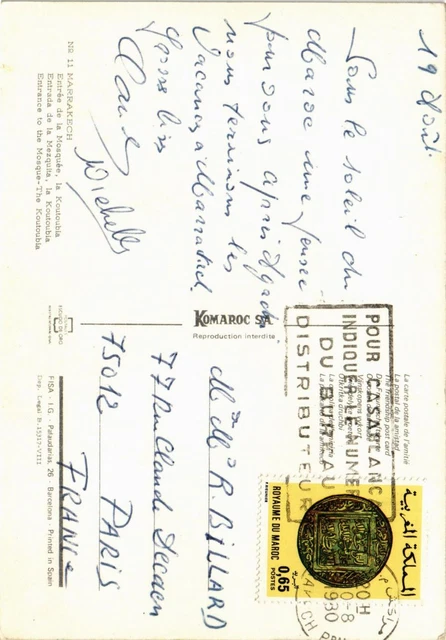 19 Avril
Sous le soleil du
Maroc une pensée
pour vous après Agadir
nous terminons les
vacances à Marrakech.
Gros bises
Michelle
NR 11 MARRAKECH
Entrée de la Mosquée, la Koutoubia
Entrada de la Mezquita, la Koutoubia
Entrance to the Mosque-The Koutoubia
KOMAROC SA
Reproduction interdite
FISA - I.G. - Palaudarias, 26 - Barcelona - Printed in Spain
La carte postale de l'amitié
La postal de la amistad
The friendship post card
POUR CASABLANCA
INDIQUER LE NUMERO
DU BUREAU
DISTRIBUTEUR
المملكة المغربية
ROYAUME DU MAROC
0,65
POSTES
M. et Mme R. BILLARD
77 Rue Claude Decaen
75012 PARIS
FRANCE